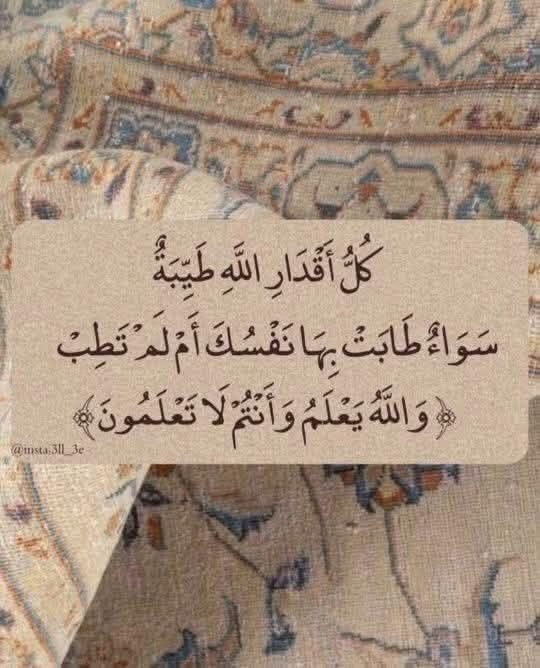 كُلُّ أَقْدَارِ اللَّهِ طَيِّبَةٌ
سَوَاءٌ طَابَتْ بِهَا نَفْسُكَ أَمْ لَمْ تَطِبْ
﴿وَاللَّهُ يَعْلَمُ وَأَنْتُمْ لَا تَعْلَمُونَ﴾
@insta:3ll_3e